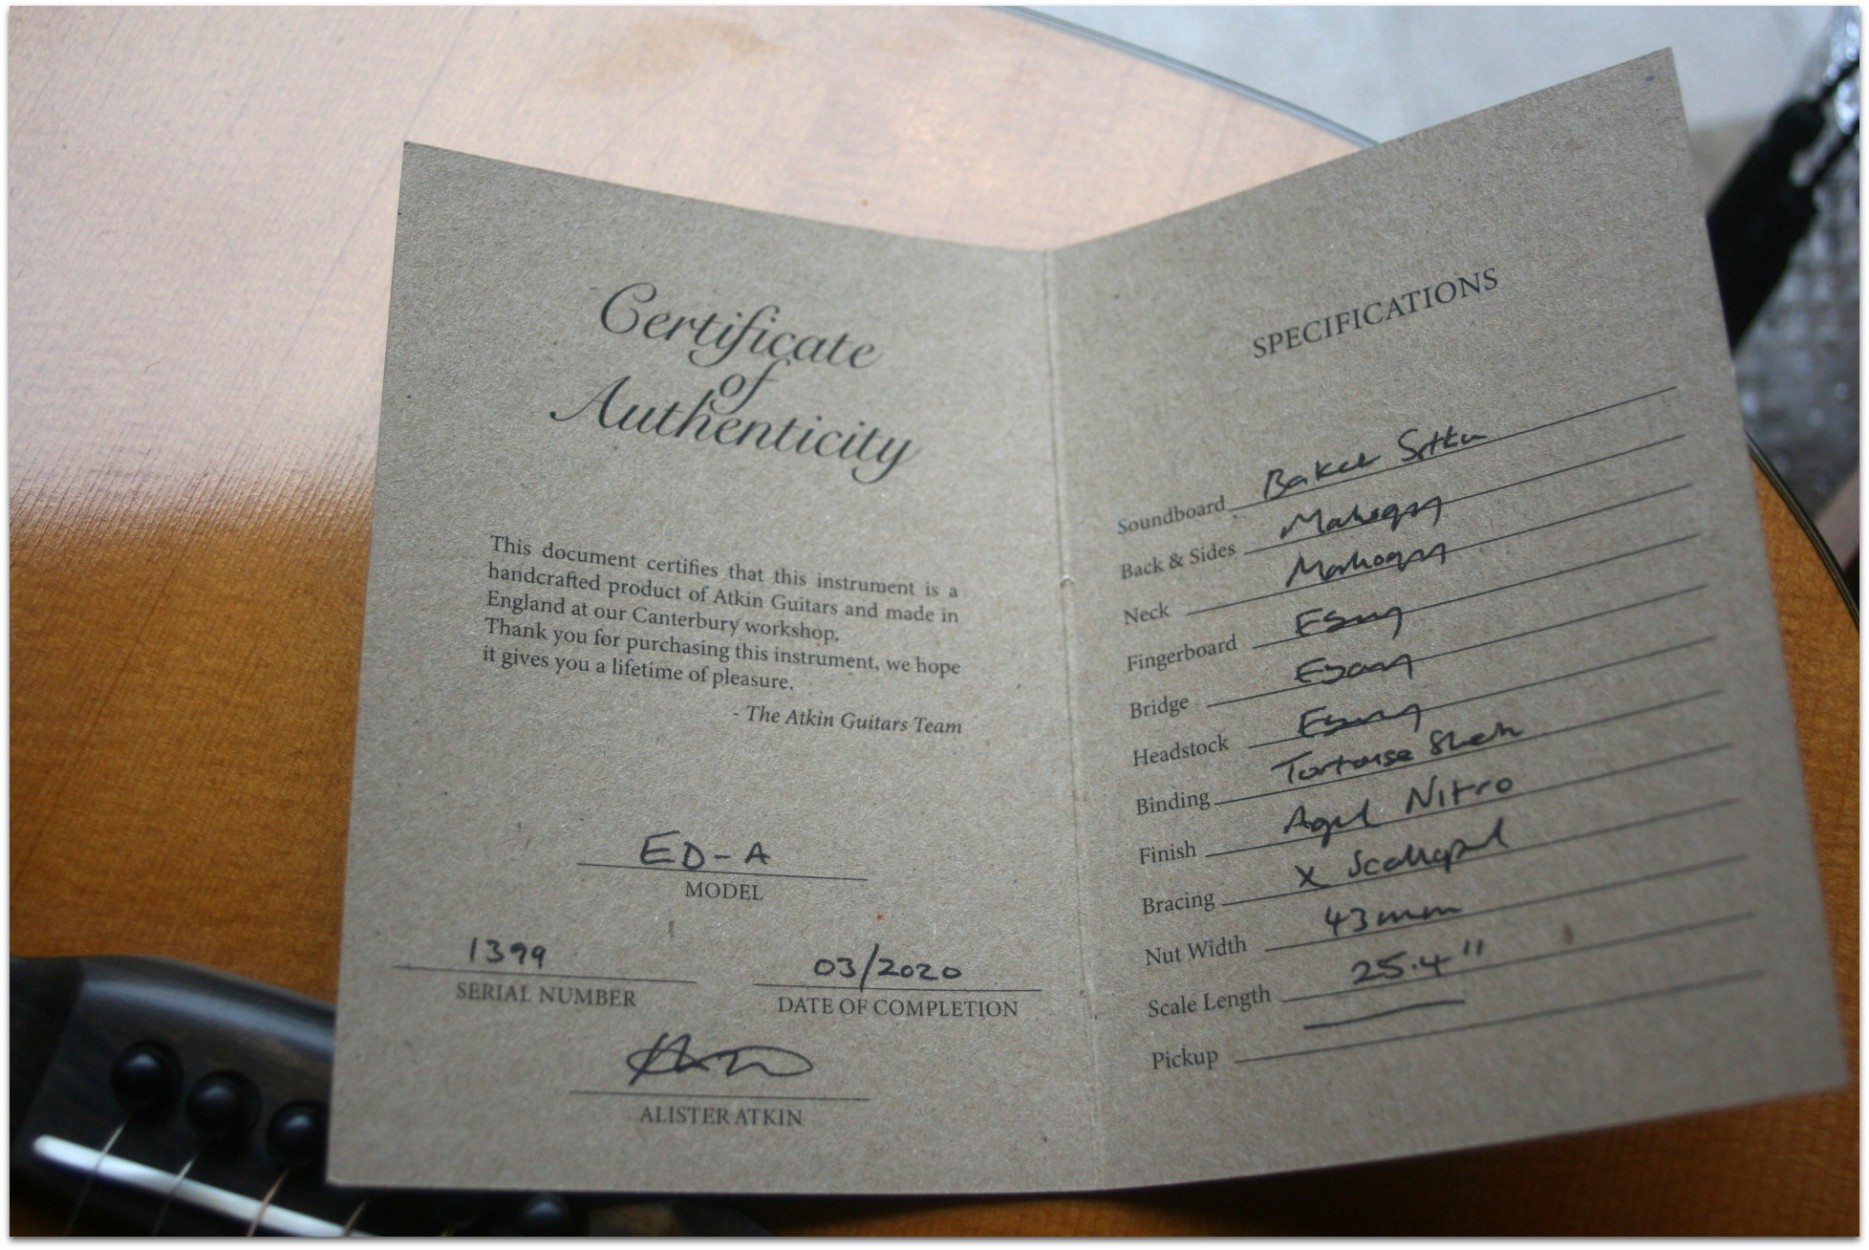 Certificate
of
Authenticity
This document certifies that this instrument is a
handcrafted product of Atkin Guitars and made in
England at our Canterbury workshop.
Thank you for purchasing this instrument, we hope
it gives you a lifetime of pleasure.
- The Atkin Guitars Team
ED-A
MODEL
1399
SERIAL NUMBER
03/2020
DATE OF COMPLETION
ALISTER ATKIN
SPECIFICATIONS
Soundboard Baked Sitka
Back & Sides Mahogany
Neck Mahogany
Fingerboard Ebony
Bridge Ebony
Headstock Ebony
Binding Tortoise Shell
Finish Aged Nitro
Bracing X Scalloped
Nut Width 43mm
Scale Length 25.4"
Pickup —